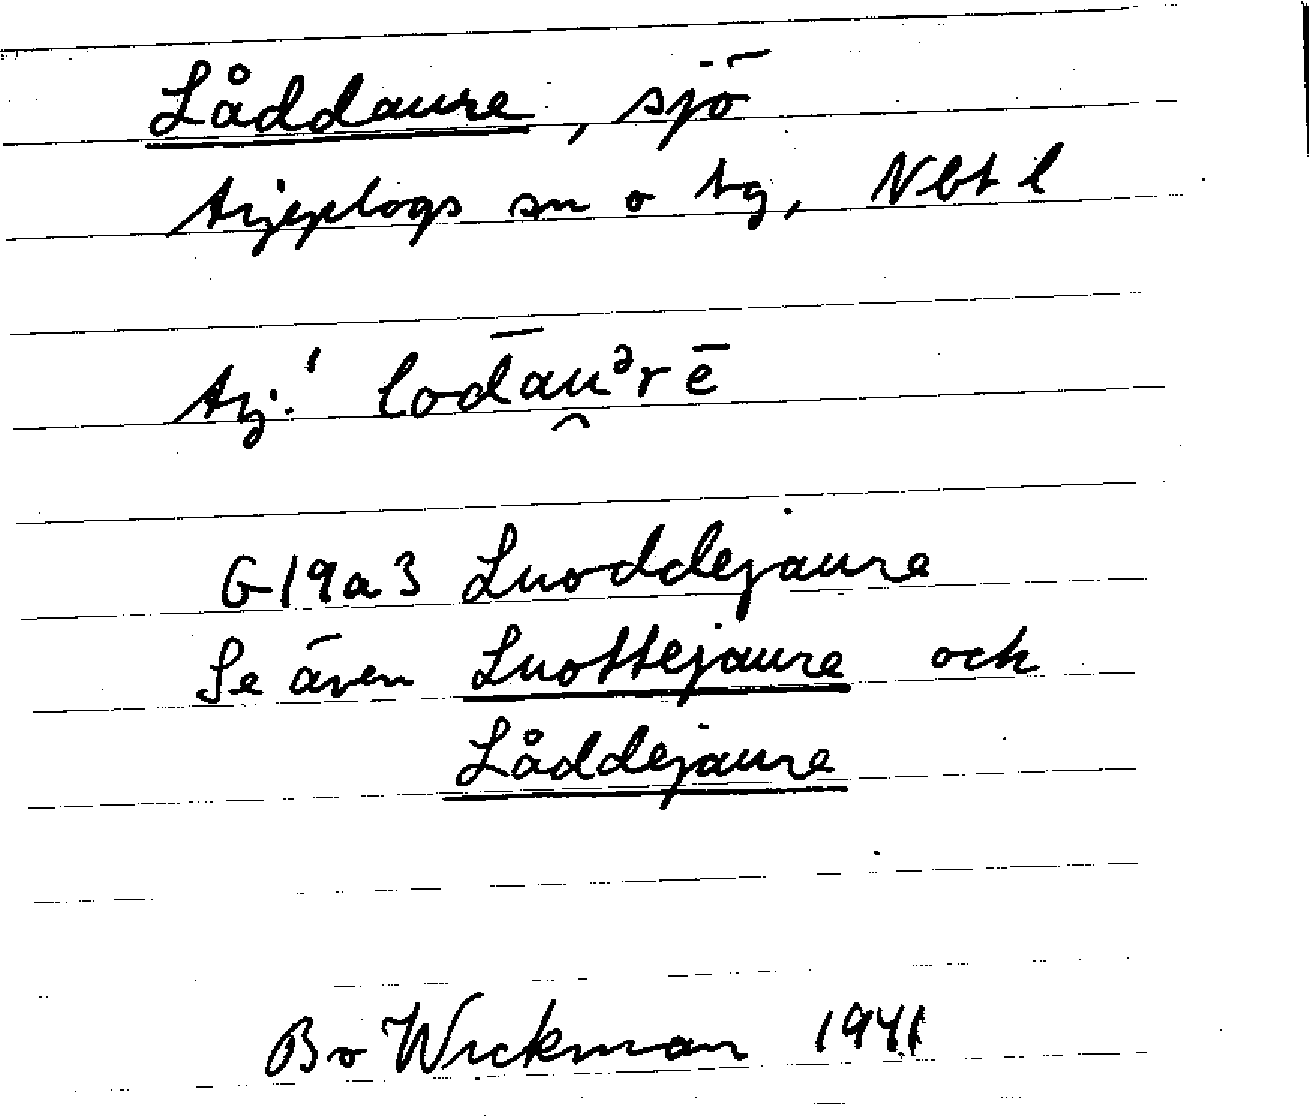 Låddaure, sjö
Arjeplogs sn o tg, Nbt l
Arj.' lodāu̯ᵊrē
G 19a3 Luoddejaure
Se även Luottejaure och
Låddejaure
Bo Wickman 1941